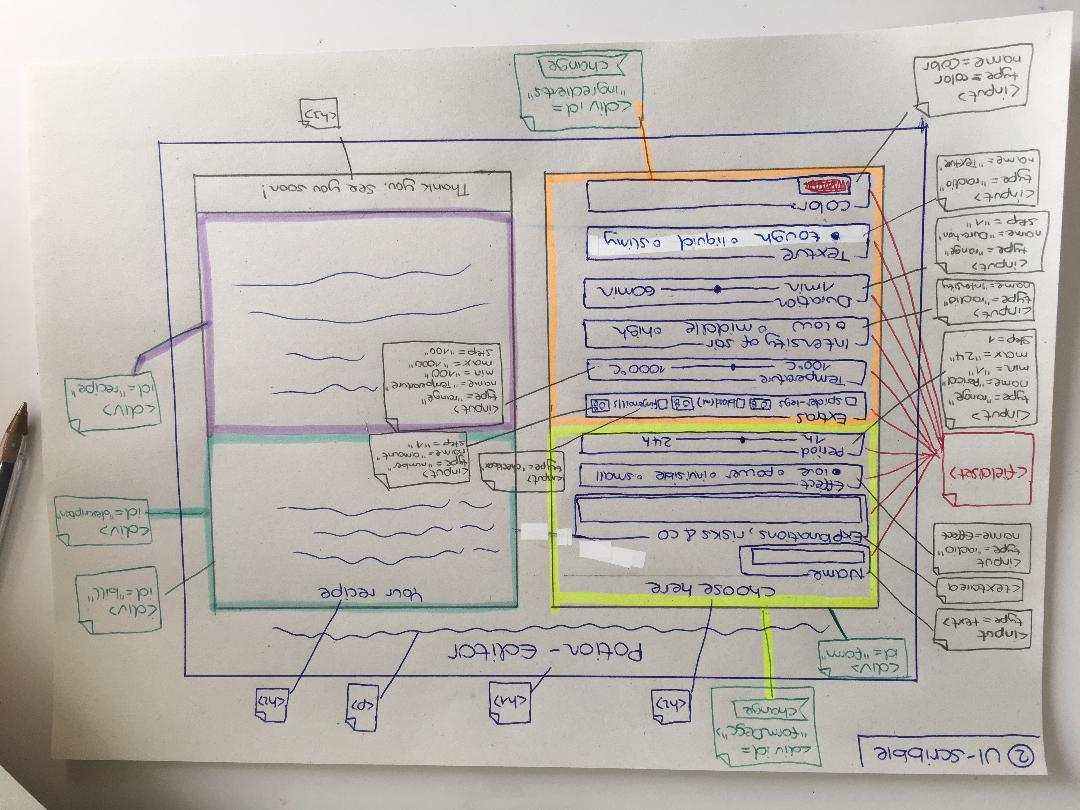 ② UI-scribble
<div id=
"formDesc">
change
<h2>
<h1>
<p>
<h2>
<div>
id="form"
Potion-Editor
<input
type=text>
<textarea
<input
type="radio
name=Effect
<fieldset>
<input>
type="range"
name="Period"
min="1"
max="24"
step=1
<input>
type="radio"
name="Intensity
<input>
type="range"
name="Duration"
step="1"
<input>
type="radio"
name="Texture"
<input>
type=color
name=Color
choose here
Name
Explanations, risks & co
Effect
love power invisible small
Period
1h 24h
Extras
spider-legs blood(ml) fingernails
Temperature
100°C 1000°C
Intensity of stir
low middle high
Duration
1min 60min
Texture
tough liquid slimy
Color
<input>
type="checkbox"
<input>
type="number"
name="amount"
step="1"
<input>
type="range"
name="Temperature"
min="100"
max="1000"
step="100"
Your recipe
Thank you. See you soon!
<div>
id="bill"
<div>
id="description"
<div>
id="recipe"
<div id=
"ingredients"
change
<h3>